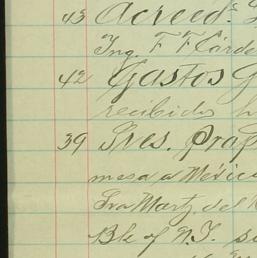 43 Acreeds.
Ing. F F Cárde
42 Gastos G
recibidos h
39 Sres. Prap
mesa a Méxic
Sra Martz del
Bk of N.J. s